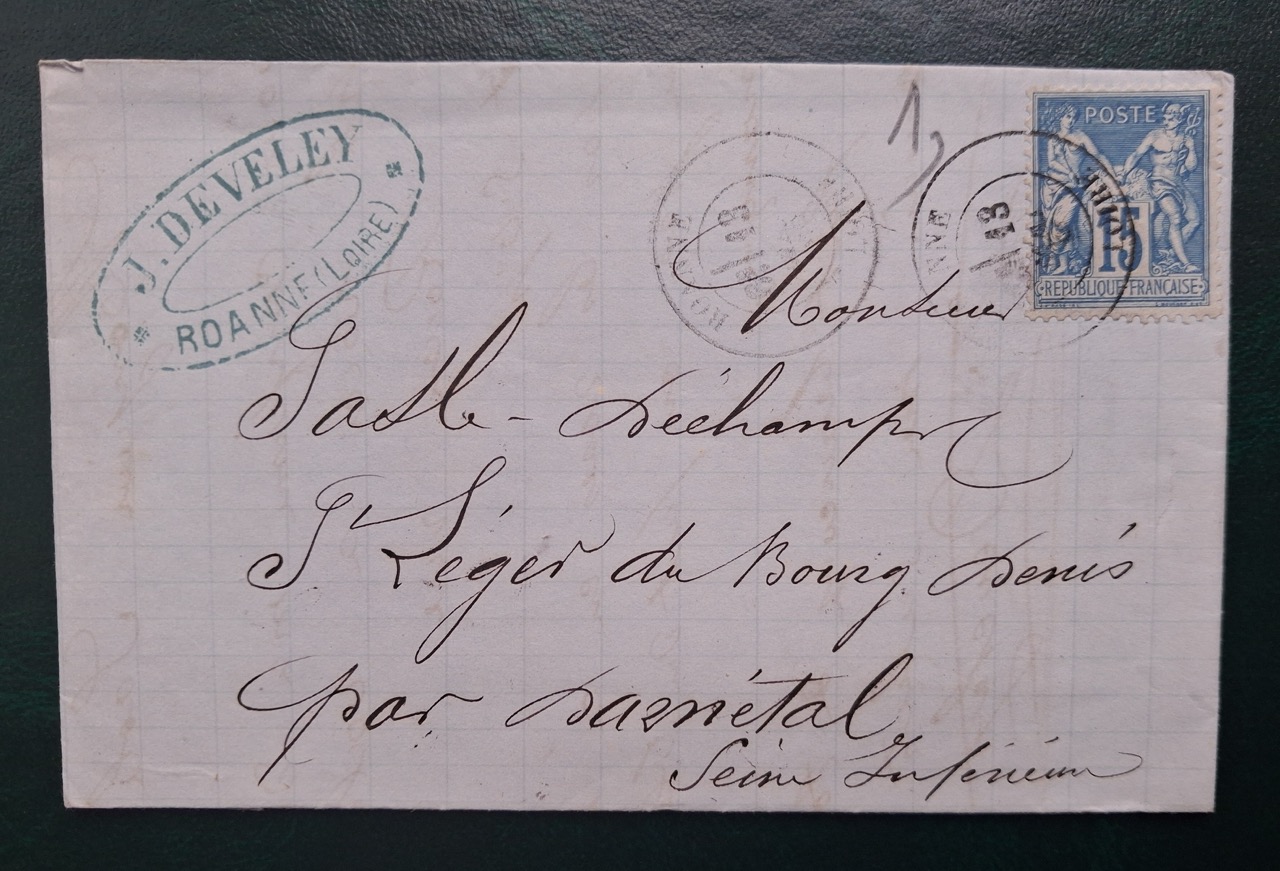 J. DEVELEY
ROANNE (LOIRE)
ROANNE
13
ROANNE
13
POSTE
15
REPUBLIQUE FRANÇAISE
1
Monsieur
Déchamps
St Léger du Bourg Denis
par Darnétal
Seine Inférieure